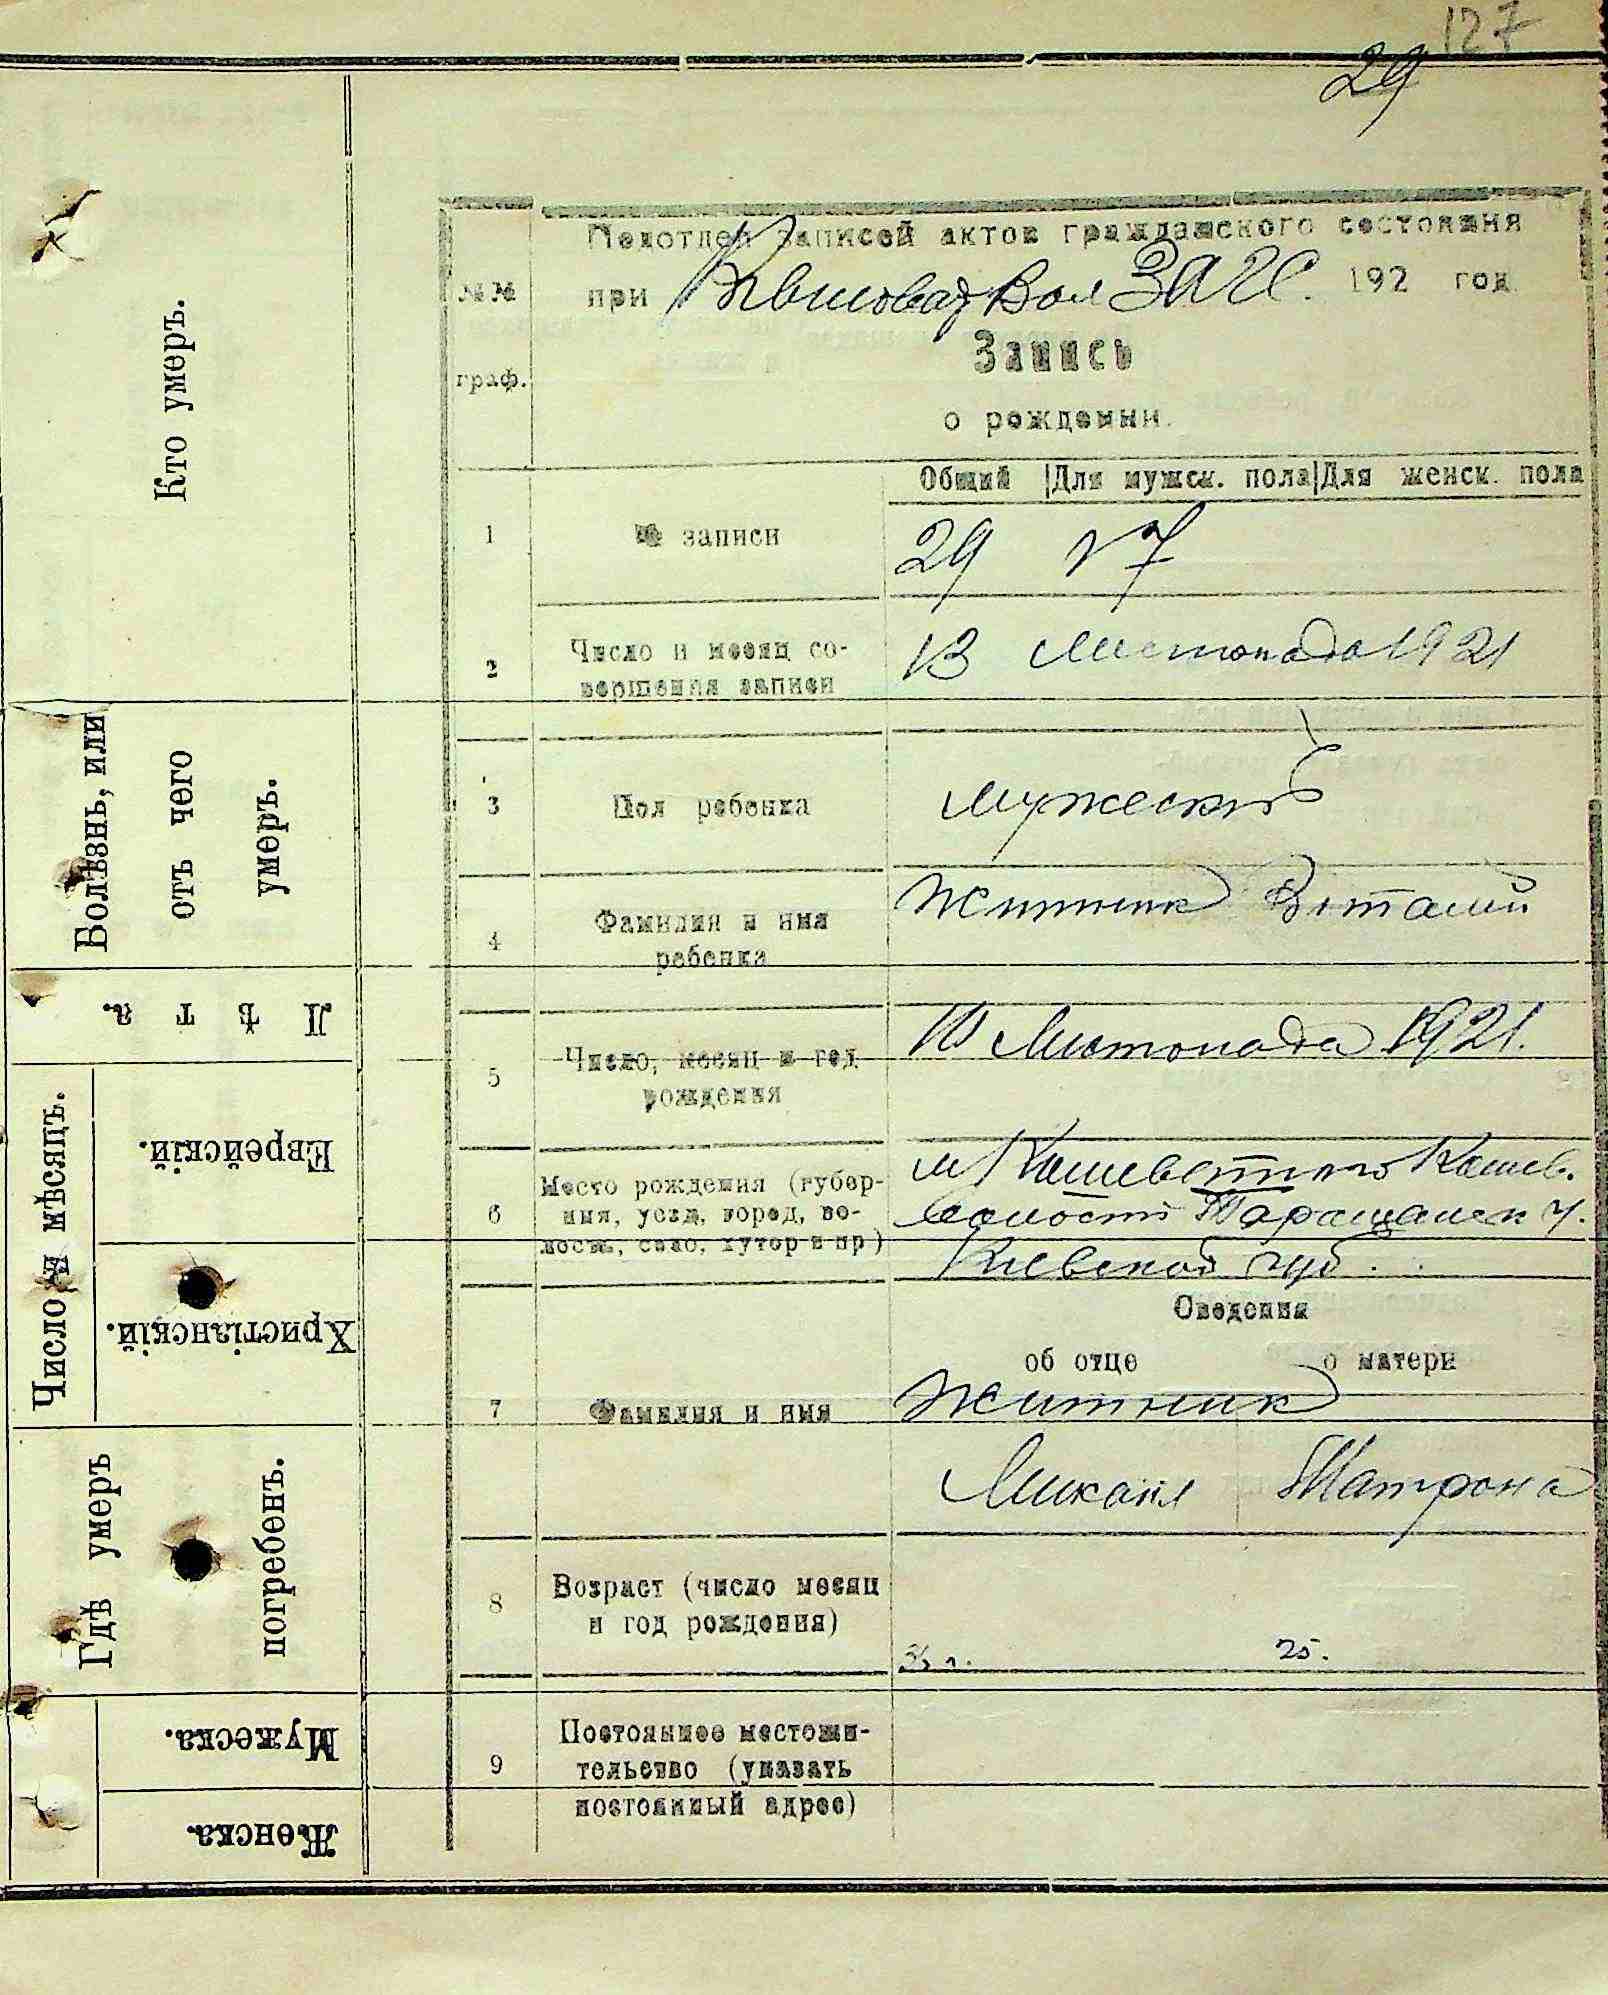 127
29
Кто умеръ.
Болѣзнь, или
отъ чего
умеръ.
Лѣта.
Число и мѣсяцъ.
Еврейскій.
Христіанскій.
Гдѣ умеръ
погребенъ.
Мужеска.
Женска.
№№
граф.
Подотдел записей актов гражданского состояния
при Вол ЗАГС. 192 год
Запись
о рождении.
Общий Для мужск. пола Для женск. пола
1 № записи 29 17
2 Число и месяц со-
вершения записи 13 Листопада 1921
3 Пол ребенка мужеский
4 Фамилия и имя
ребенка Житник Віталий
5 Число, месяц и год
рождения 10 Листопада 1921.
6 Место рождения (губер-
ния, уезд, город, во-
лость, село, хутор и пр)
м Кошев.
волости Таращанск у.
Киевской губ.
Сведения
об отце о матери
7 Фамилия и имя Житник
Михаил Матрона
8 Возраст (число месяц
и год рождения)
25.
9 Постоянное местожи-
тельство (указать
постоянный адрес)